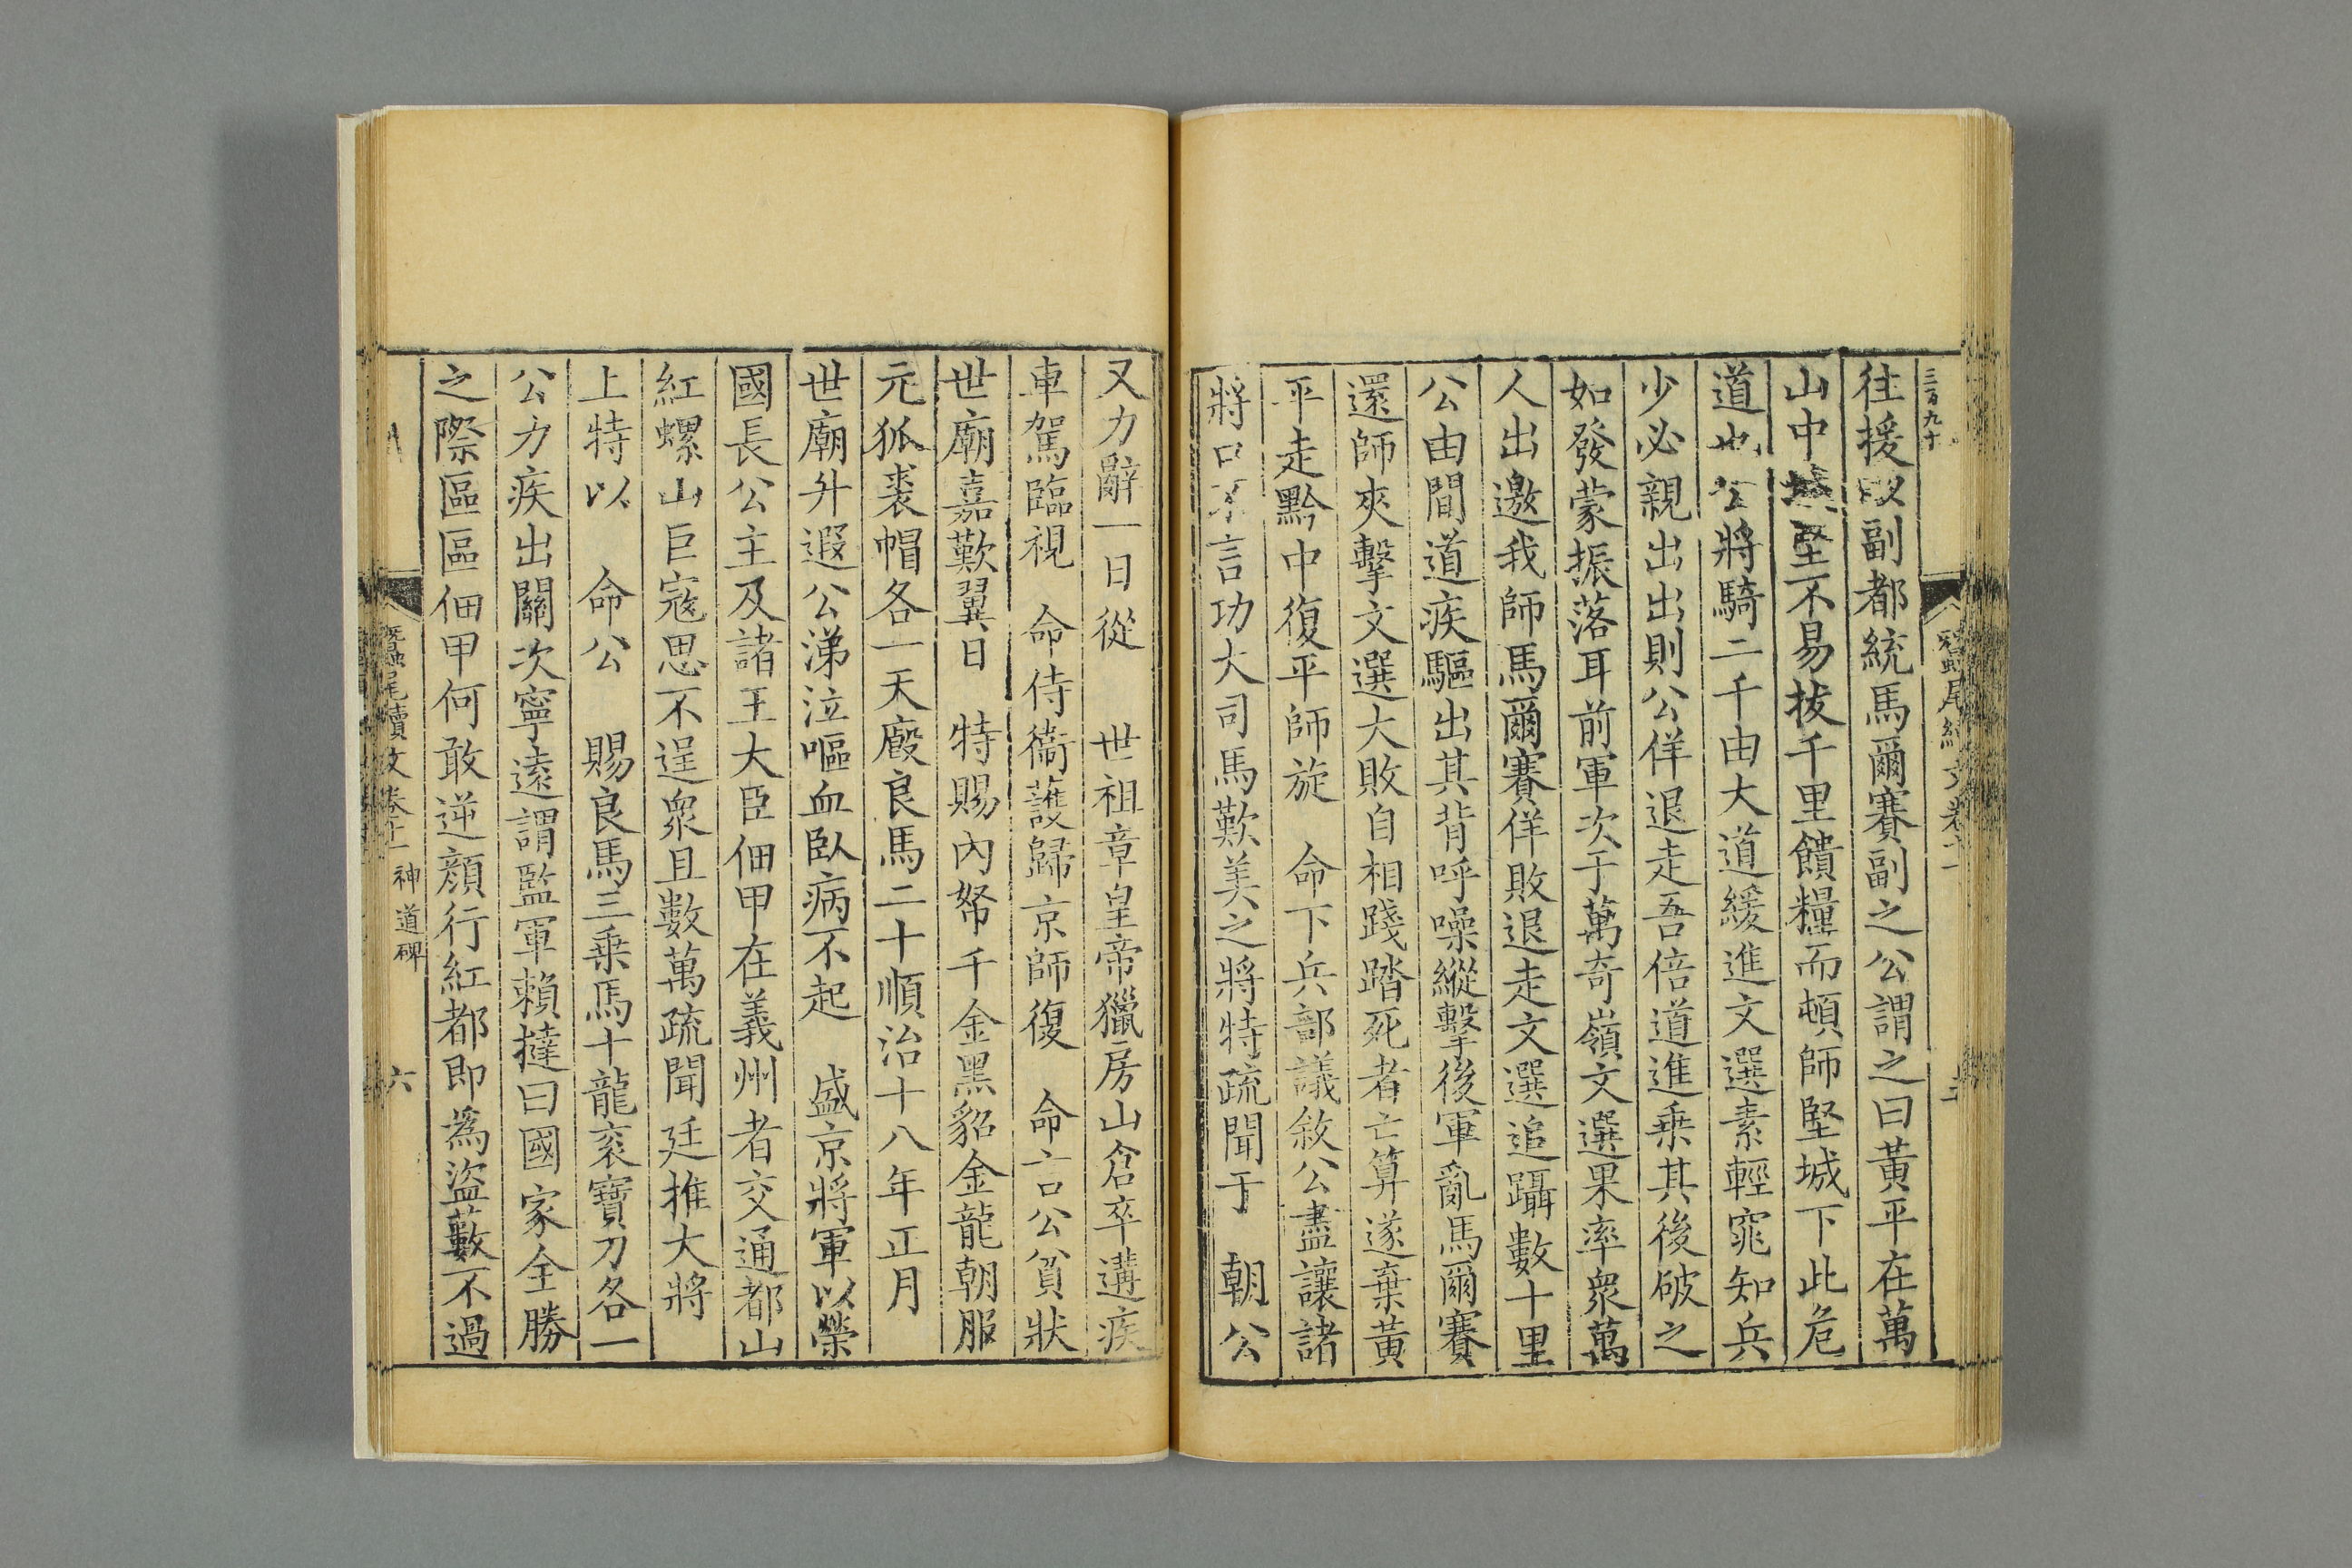 三百九十
蠶尾續文卷十一
往援以副都統馬爾賽副之公謂之曰黃平在萬
山中城堅不易拔千里饋糧而頓師堅城下此危
道也公將騎二千由大道緩進文選素輕窕知兵
少必親出出則公佯退走吾倍道進乗其後破之
如發蒙振落耳前軍次于萬奇嶺文選果率衆萬
人出邀我師馬爾賽佯敗退走文選追躡數十里
公由間道疾驅出其背呼噪縱擊後軍亂馬爾賽
還師夾擊文選大敗自相踐踏死者亡算遂棄黃
平走黔中復平師旋　命下兵部議敘公盡讓諸
將口不言功大司馬歎美之將特疏聞于　朝公
又力辭一日從　世祖章皇帝獵房山倉卒遘疾
車駕臨視　命侍衞護歸京師復　命言公貧狀
世廟嘉歎翼日　特賜內帑千金黑貂金龍朝服
元狐裘帽各一天廏良馬二十順治十八年正月
世廟升遐公涕泣嘔血臥病不起　盛京將軍以榮
國長公主及諸王大臣佃甲在義州者交通都山
紅螺山巨寇思不逞衆且數萬疏聞廷推大將
上特以　命公　賜良馬三乗馬十龍衮寶刀各一
公力疾出關次寧遠謂監軍賴撻曰國家全勝
之際區區佃甲何敢逆顏行紅都即為盜藪不過
蠶尾續文卷十一　神道碑　六